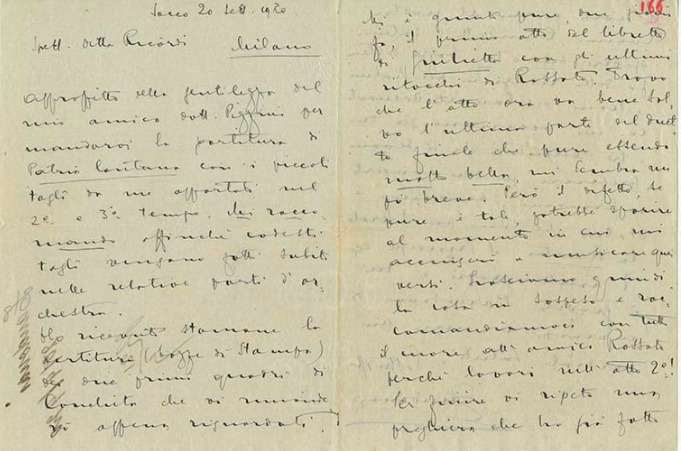 Sacco 20 Sett. 1920
Spett. Ditta Ricordi
Milano
Approfitto della gentilezza del
mio amico dott. Pizzini per
mandarvi la partitura di
Patria lontana con i piccoli
tagli da me apportati nel
2º e 3º tempo. Mi racco-
mando affinché codesti
tagli vengano fatti subito
nelle relative parti d'or-
chestra.
Ho ricevuto stamane la
partitura (bozze di stampa)
dei due primi quadri di
che vi rimando
appena riguardati.
166
mi è giunto pure, due giorni
fa, il primo atto del libretto
di Giulietta con gli ultimi
ritocchi di Rossato. Trovo
che l'atto ora va bene sal-
vo l'ultima parte del duet-
to finale che pure essendo
molto bella, mi sembra un
pò breve. Però il difetto, se
pure è tale, potrebbe sparire
al momento in cui mi
accingerò a musicare quei
versi. Lasciamo quindi
la cosa in sospeso e rac-
comandiamoci con tutto
il cuore all'amico Rossato
perché lavori nell'atto 2º!
Per finire vi ripeto una
preghiera che ho già fatto